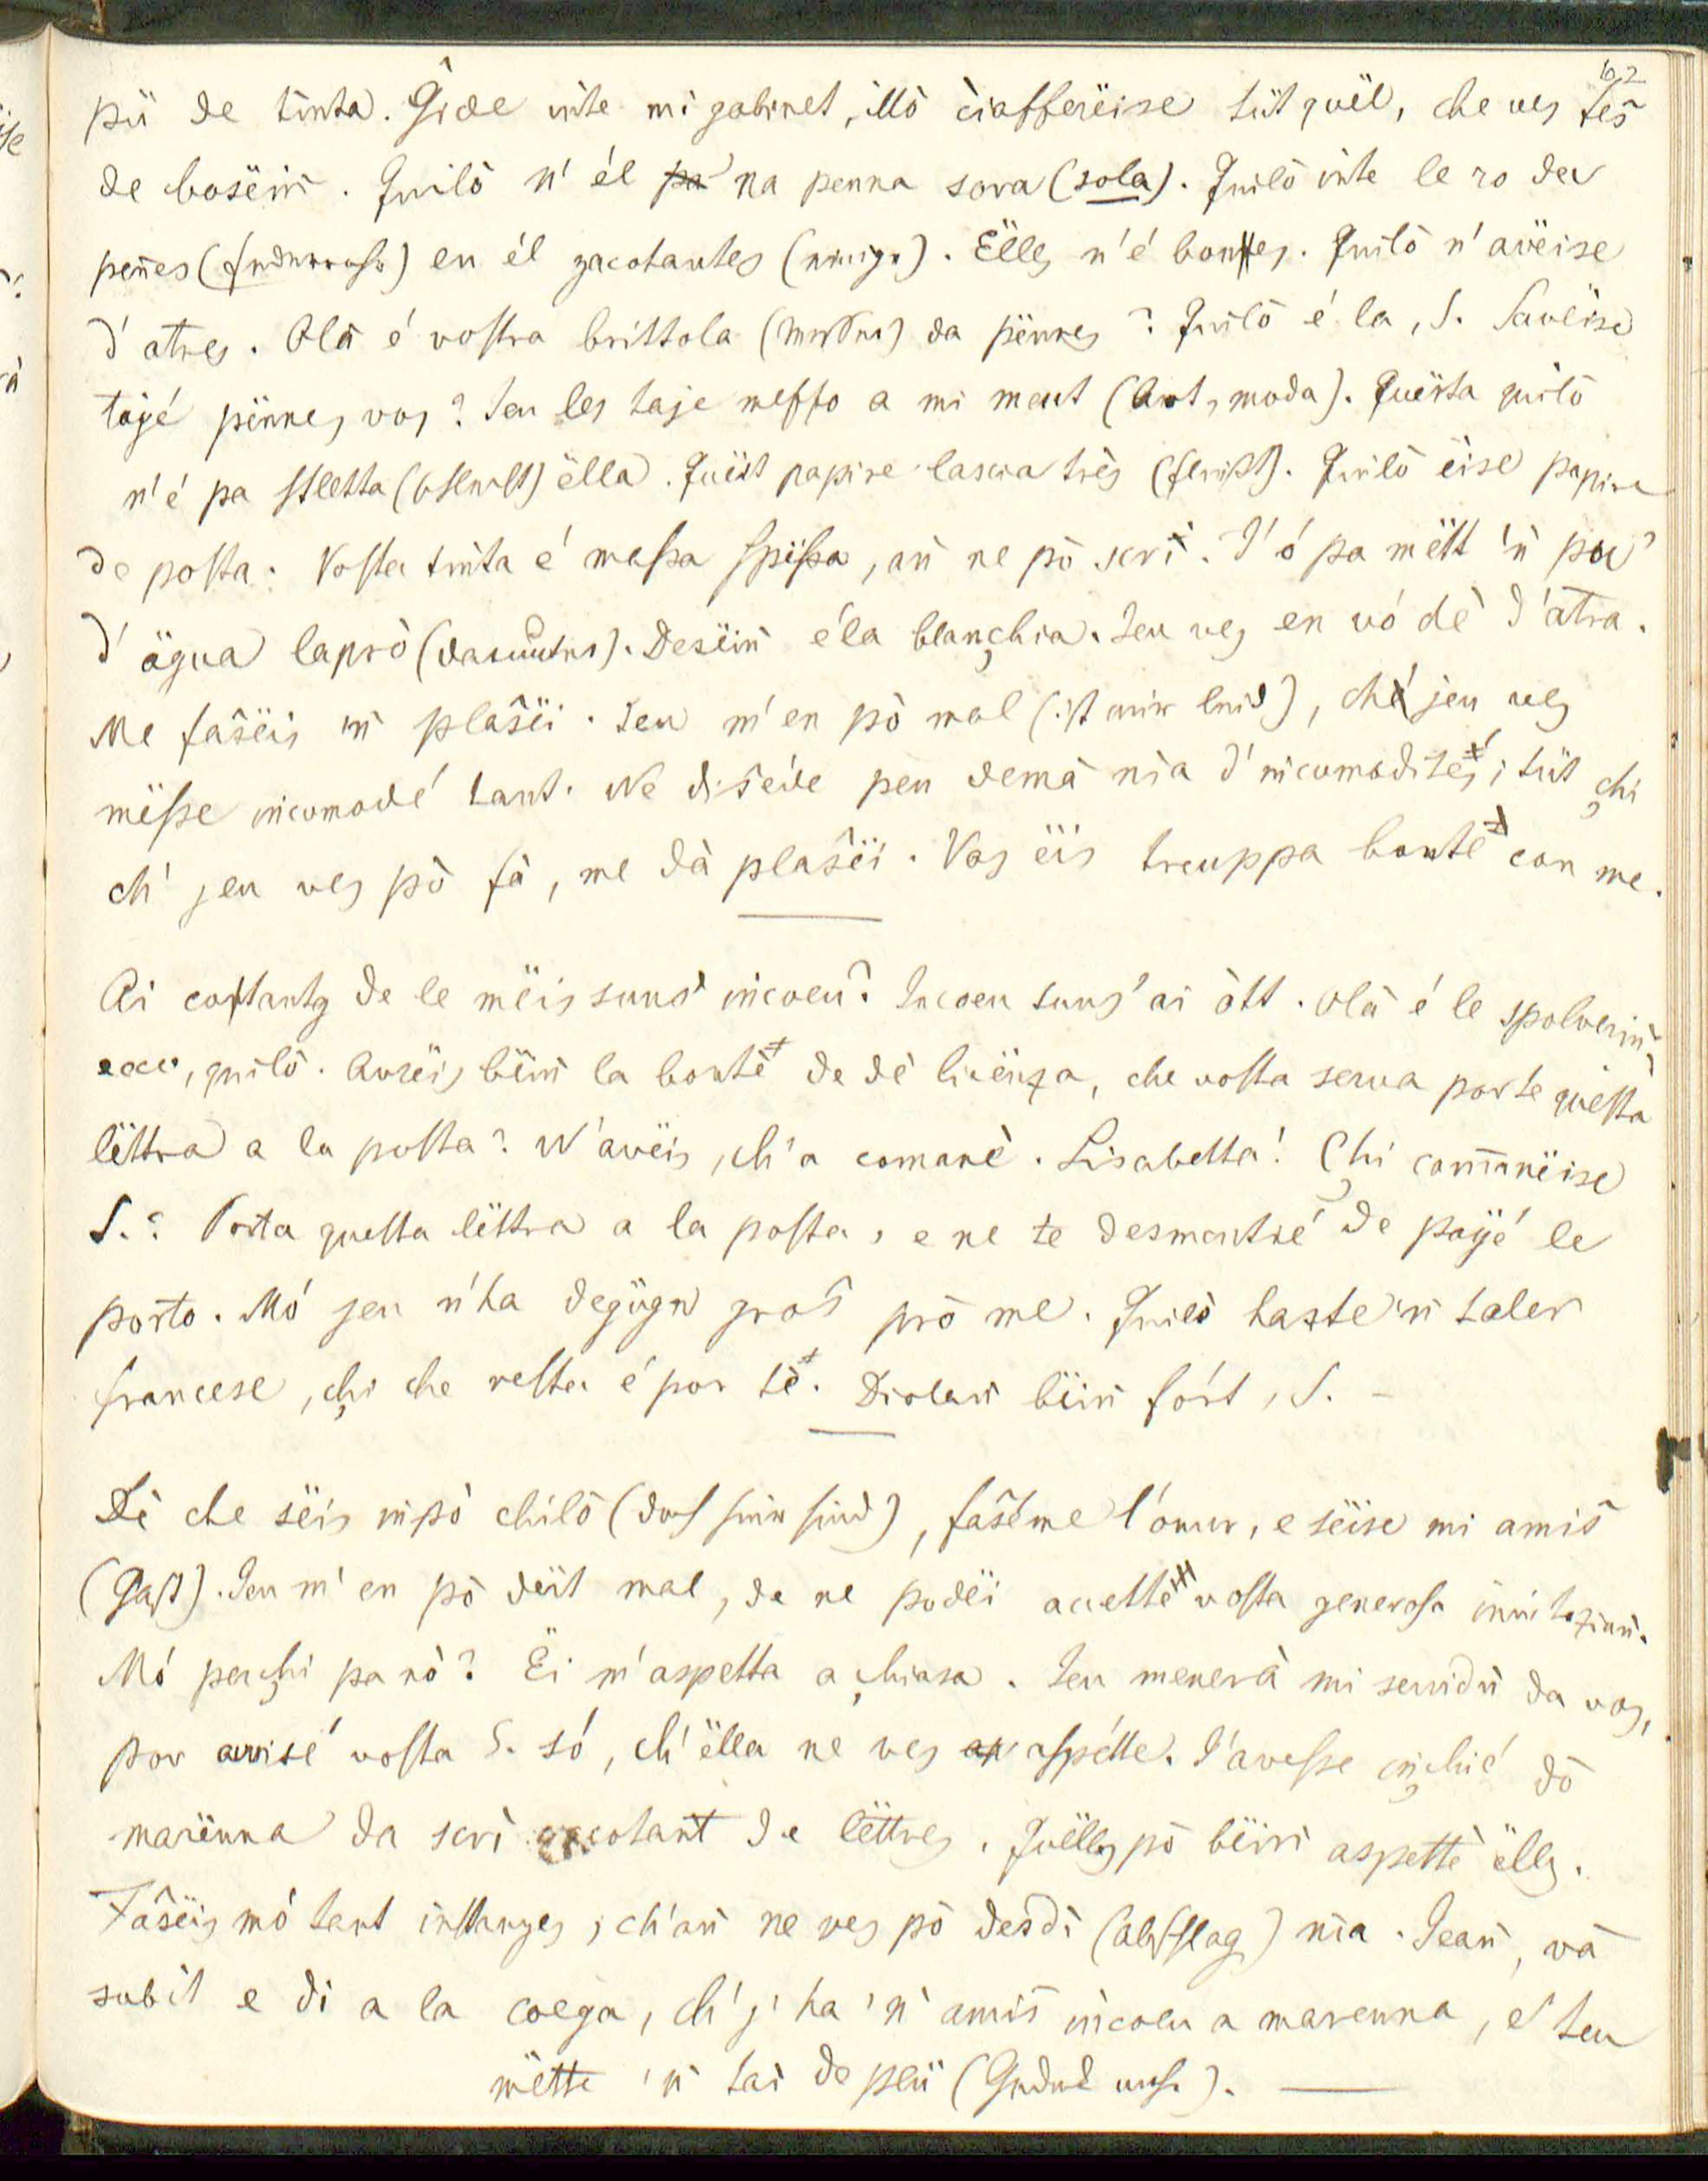 102
pü de tinta. Ĝide inte mi gabinet, illò ciaffarëise tüt quël, che ves fes̄
de bosëin̄. Quilò n' él na penna sora (sola). Quilò inte le ro der
pen̄es (Federrohr) en él zacotantes (einige). Ëlles n'é bones. Quilò n'avëise
d'atres. Olà é vostra brittola (Messer) da pënnes? Quilò é la, S. Savëise
tajé pënnes vos? Jeu les taje messo a mi meut (Art, moda). Quësta quilò
n'é pa stletta (schlecht) ëlla. Quëst papire lascia trës (fließt). Quilò ëise papire
de posta. Vosta tinta é massa spissa, an̄ ne pò scrì. J'ó pa mëtt 'n̄ pù
d'ägua laprò (dazu). Desëin̄ éla blanchia. Jeu ves en vó dè d'atra.
Me fas̄ëis 'n̄ plas̄ëi. Jeu m'en pò mal (ist mir leid), che jeu ves
mësse incomodé tant. Ne dis̄éde peu demà nia d'incomodités; tüt chi
ch' jeu ves pò fà, me dà plas̄ëi. Vos ëis treuppa bonté con me.
Ai costantes de le mëis suns' incoeu? Incoeu suns' ai òtt. Olà é le spolverin̄
ecco, quilò. Avrëis bëin̄ la bonté de dè licënza, che vosta serva porte questa
lëttra a la posta? N'avëis, ch'a comanè. Lisabetta! Chi comanëise
S.? Porta questa lëttra a la posta, e ne te desmentié de pajé le
porto. Mó jeu n'ha degügn gros̄ prò me. Quilò haste 'n̄ taler
francese, chi che resta é por tè. Diolan̄ bëin̄ fórt, S. –
Dè che sëis inpò chilò (da Sie hier sind), fas̄éme l'onur, e sëise mi amis̄
(Gast). Jeu m'en pò dëit mal, de ne podëi accetté vosta generosa invitaziun̄.
Mó perchi pa nò? Ëi m'aspetta a chiasa. Jeu menerà mi servidù da vos,
por avvisé vosta S. só, ch'ëlla ne ves aspétte. J'avesse inchié dò
marënna da scrì zacotant de lëttres. Quëlles pò bëin̄ aspettè ëlles.
Fas̄ëis mó tant instanzes, ch'an̄ ne ves pò desdì (abschlag) nia. Jean̄, và
subit e di a la coega, ch'j' ha 'n' amis̄ incoeu a marenna, e ten
mëtte 'n̄ tai de plü